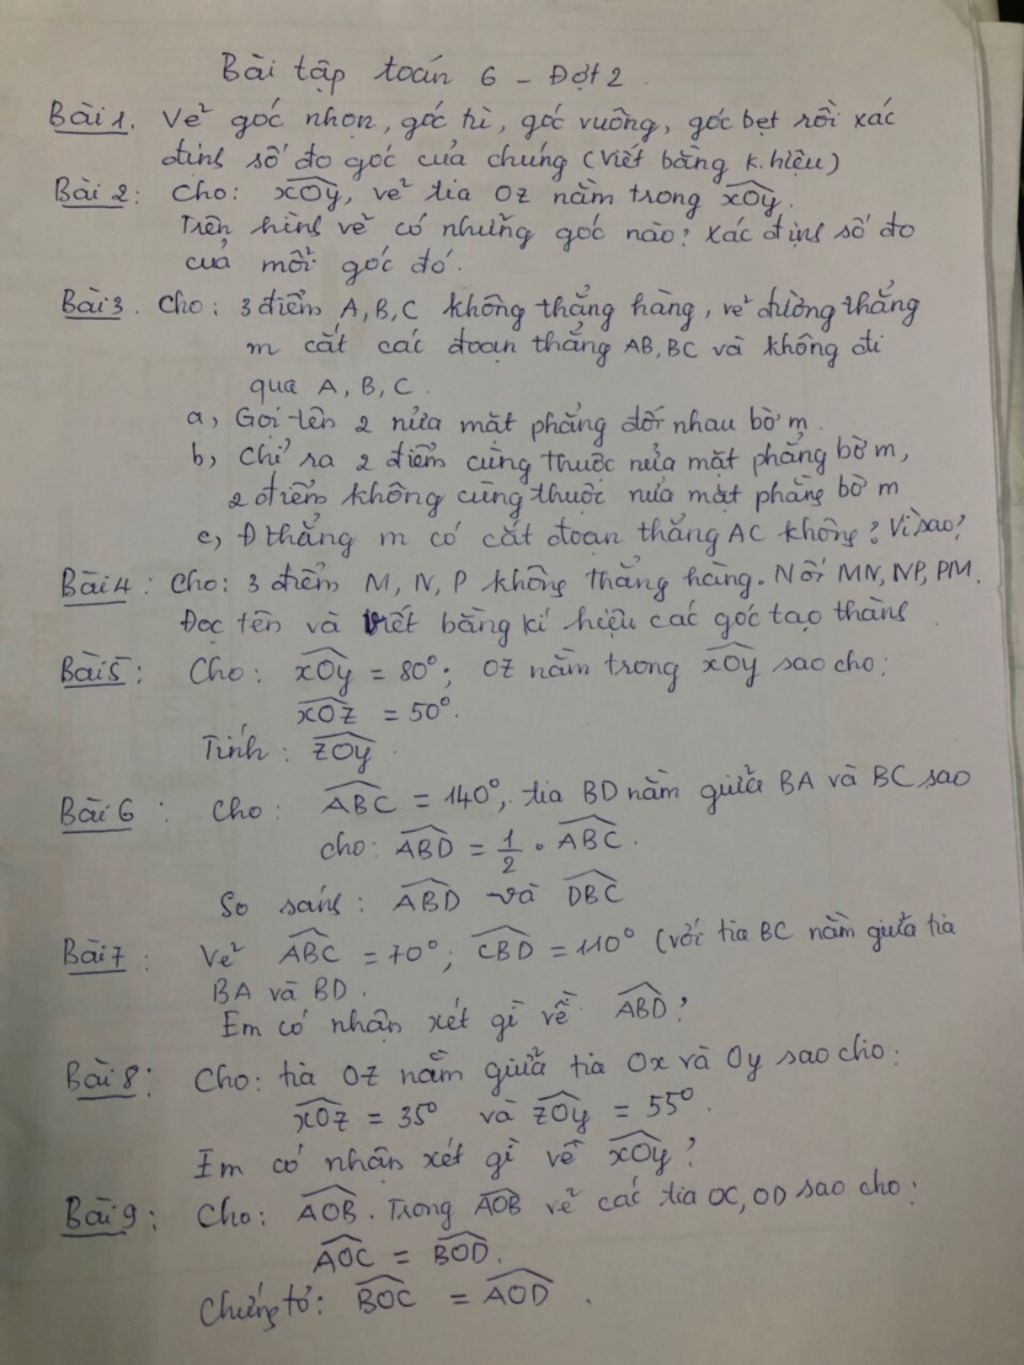 Bài tập toán 6 - Đợt 2.
Bài 1. Vẽ góc nhọn, góc tù, góc vuông, góc bẹt rồi xác
định số đo góc của chúng (Viết bằng k.hiệu)
Bài 2: Cho: xOy, vẽ tia Oz nằm trong xOy.
Trên hình vẽ có những góc nào? Xác định số đo
của mỗi góc đó.
Bài 3. Cho: 3 điểm A, B, C không thẳng hàng, vẽ đường thẳng
m cắt các đoạn thẳng AB, BC và không đi
qua A, B, C.
a, Gọi tên 2 nửa mặt phẳng đối nhau bờ m.
b, Chỉ ra 2 điểm cùng thuộc nửa mặt phẳng bờ m,
2 điểm không cùng thuộc nửa mặt phẳng bờ m
c, Đ thẳng m có cắt đoạn thẳng AC không? Vì sao?
Bài 4: Cho: 3 điểm M, N, P không thẳng hàng. Nối MN, NP, PM.
Đọc tên và viết bằng kí hiệu các góc tạo thành.
Bài 5: Cho: xOy = 80°; Oz nằm trong xOy sao cho:
xOz = 50°.
Tính: zOy.
Bài 6: Cho: ABC = 140°, tia BD nằm giữa BA và BC sao
cho: ABD = 1/2 . ABC.
So sánh: ABD và DBC
Bài 7: Vẽ ABC = 70°; CBD = 110° (với tia BC nằm giữa tia
BA và BD.
Em có nhận xét gì về ABD?
Bài 8: Cho: tia Oz nằm giữa tia Ox và Oy sao cho:
xOz = 35° và zOy = 55°.
Em có nhận xét gì về xOy?
Bài 9: Cho: AOB. Trong AOB vẽ các tia OC, OD sao cho:
AOC = BOD.
Chứng tỏ: BOC = AOD.